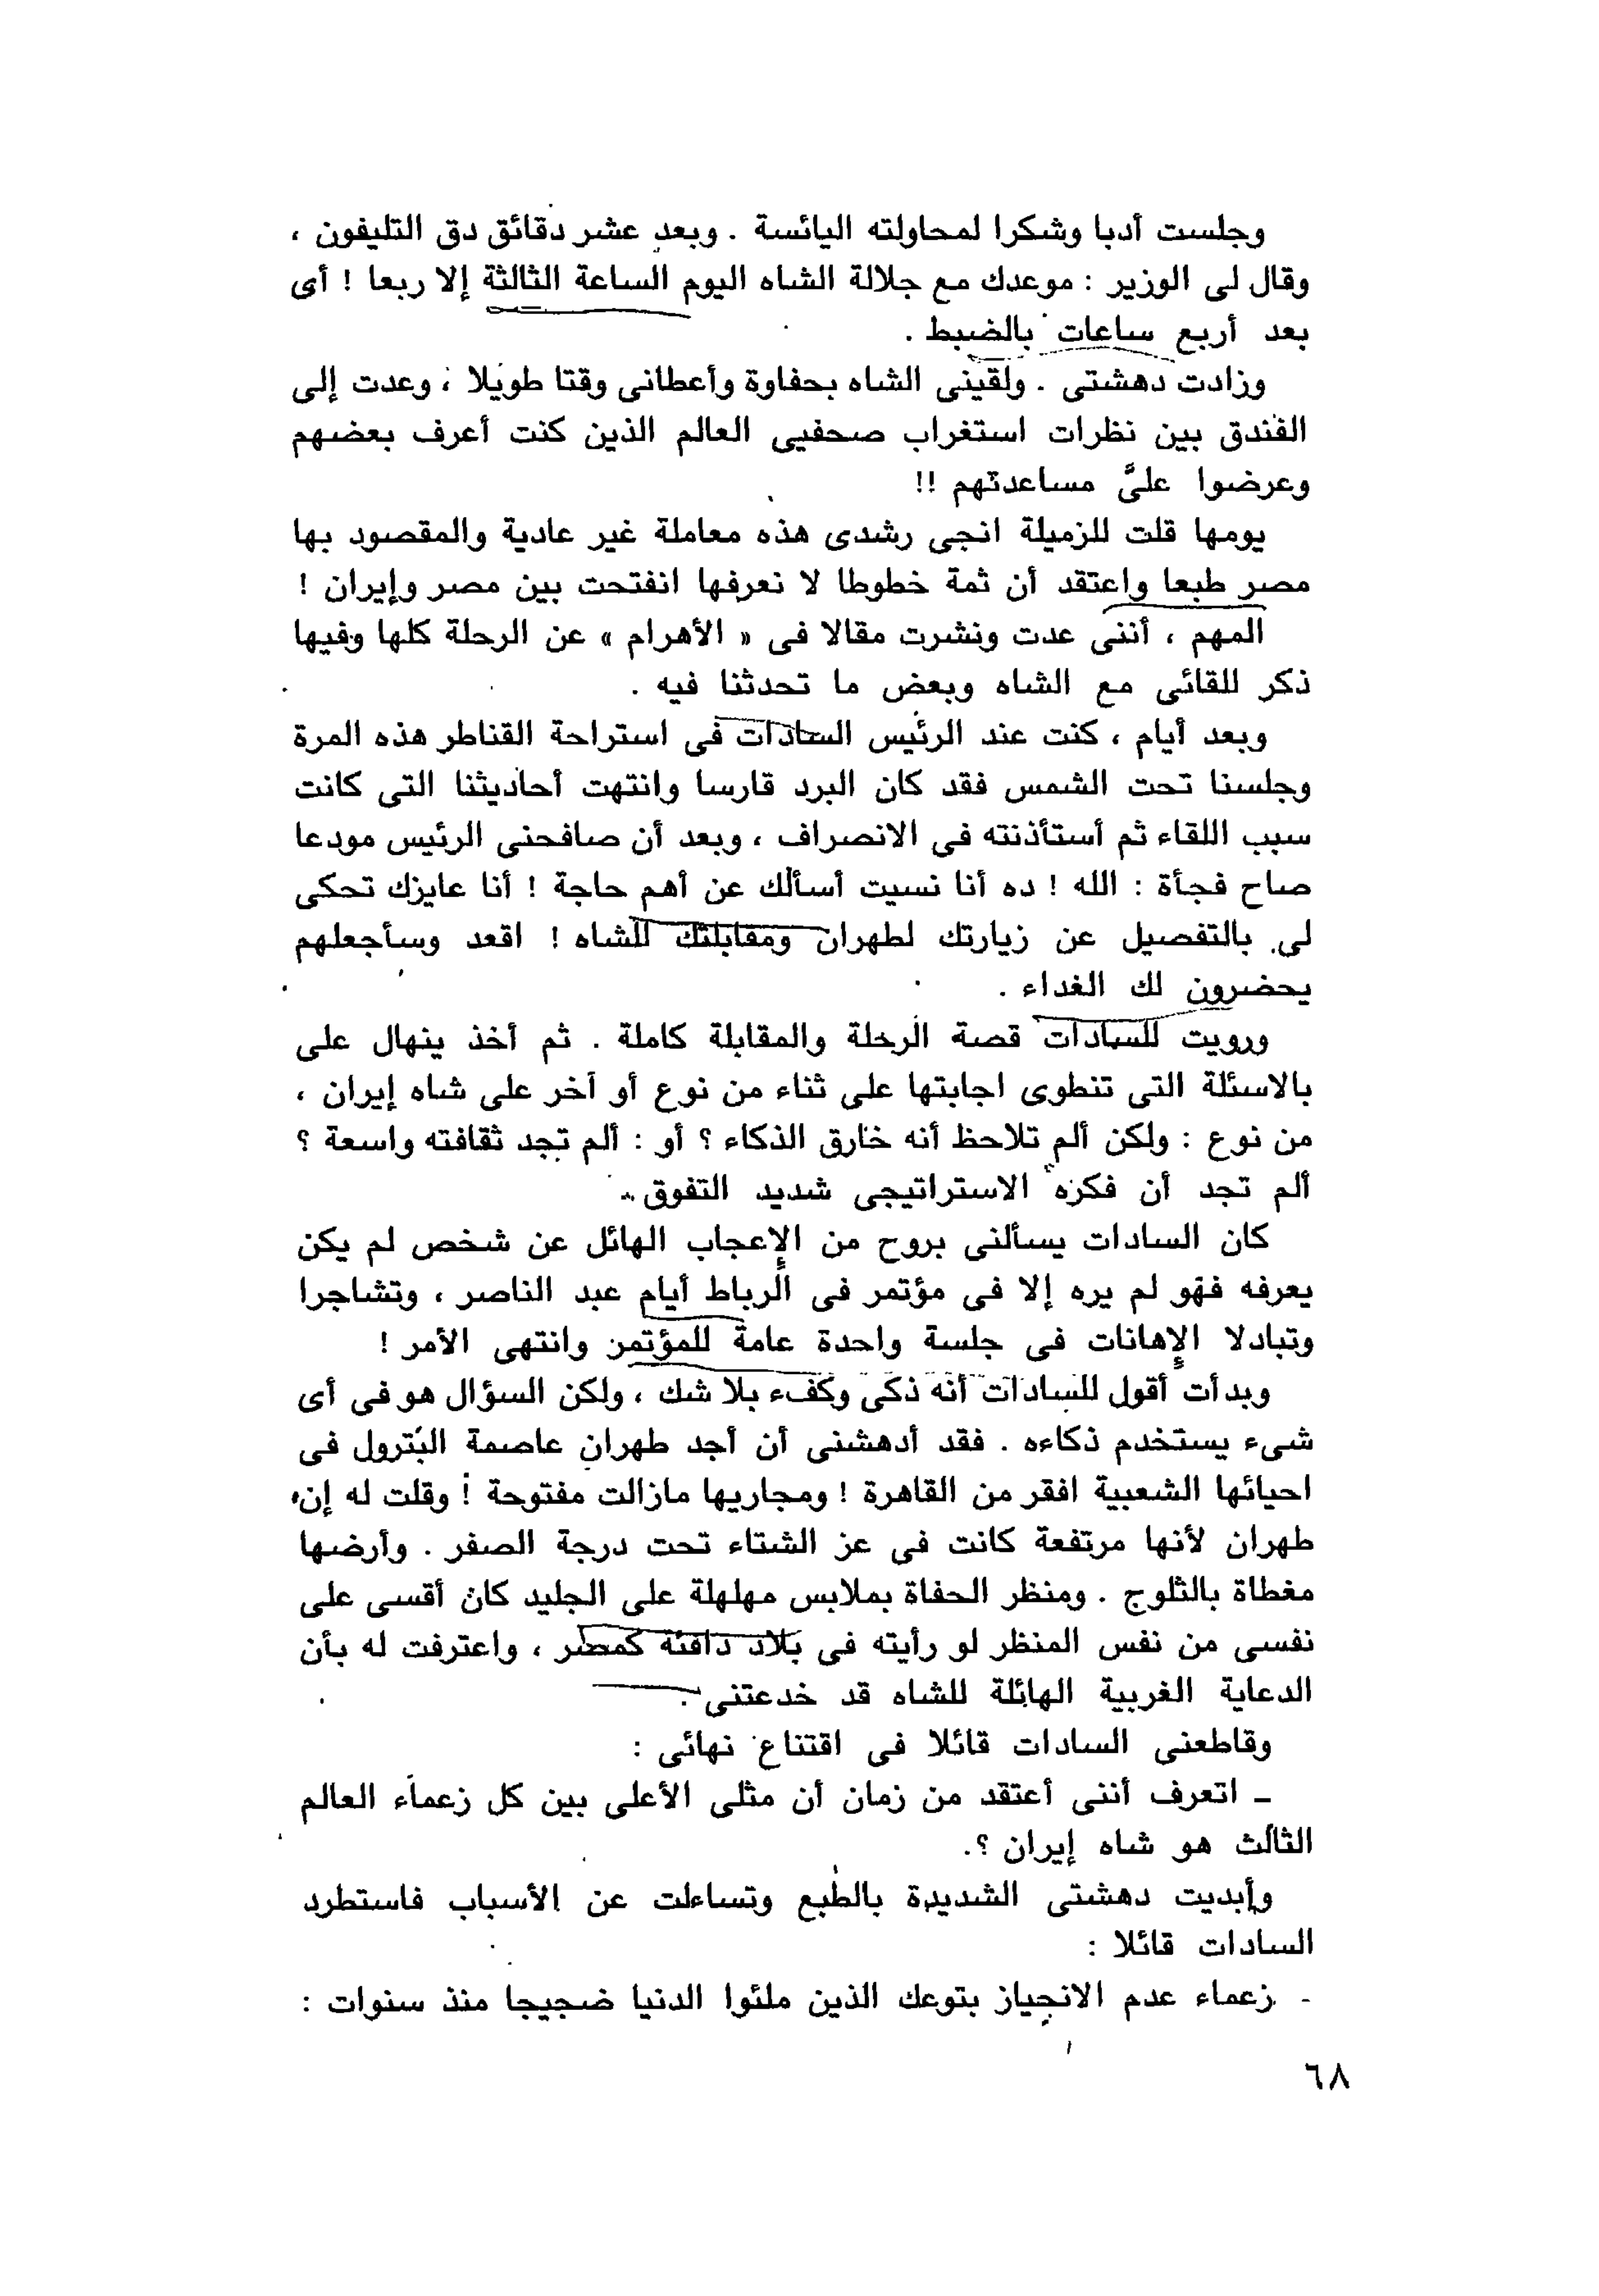 وجلست أدبا وشكرا لمحاولته اليائسة . وبعد عشر دقائق دق التليفون ،
وقال لى الوزير : موعدك مع جلالة الشاه اليوم الساعة الثالثة إلا ربعا ! أى
بعد أربع ساعات بالضبط .
وزادت دهشتى . ولقينى الشاه بحفاوة وأعطانى وقتا طويلا ، وعدت إلى
الفندق بين نظرات استغراب صحفيى العالم الذين كنت أعرف بعضهم
وعرضوا علىَّ مساعدتهم !!
يومها قلت للزميلة انجى رشدى هذه معاملة غير عادية والمقصود بها
مصر طبعا واعتقد أن ثمة خطوطا لا نعرفها انفتحت بين مصر وإيران !
المهم ، أننى عدت ونشرت مقالا فى « الأهرام » عن الرحلة كلها وفيها
ذكر للقائى مع الشاه وبعض ما تحدثنا فيه .
وبعد أيام ، كنت عند الرئيس السادات فى استراحة القناطر هذه المرة
وجلسنا تحت الشمس فقد كان البرد قارسا وانتهت أحاديثنا التى كانت
سبب اللقاء ثم أستأذنته فى الانصراف ، وبعد أن صافحنى الرئيس مودعا
صاح فجأة : الله ! ده أنا نسيت أسألك عن أهم حاجة ! أنا عايزك تحكى
لى بالتفصيل عن زيارتك لطهران ومقابلتك للشاه ! اقعد وسأجعلهم
يحضرون لك الغداء .
ورويت للسادات قصة الرحلة والمقابلة كاملة . ثم أخذ ينهال على
بالاسئلة التى تنطوى اجابتها على ثناء من نوع أو آخر على شاه إيران ،
من نوع : ولكن ألم تلاحظ أنه خارق الذكاء ؟ أو : ألم تجد ثقافته واسعة ؟
ألم تجد أن فكره الاستراتيجى شديد التفوق ..
كان السادات يسألنى بروح من الإعجاب الهائل عن شخص لم يكن
يعرفه فهو لم يره إلا فى مؤتمر فى الرباط أيام عبد الناصر ، وتشاجرا
وتبادلا الإهانات فى جلسة واحدة عامة للمؤتمر وانتهى الأمر !
وبدأت أقول للسادات أنه ذكى وكفء بلا شك ، ولكن السؤال هو فى أى
شىء يستخدم ذكاءه . فقد أدهشنى أن أجد طهران عاصمة البترول فى
احيائها الشعبية افقر من القاهرة ! ومجاريها مازالت مفتوحة ! وقلت له إن
طهران لأنها مرتفعة كانت فى عز الشتاء تحت درجة الصفر . وأرضها
مغطاة بالثلوج . ومنظر الحفاة بملابس مهلهلة على الجليد كان أقسى على
نفسى من نفس المنظر لو رأيته فى بلاد دافئة كمصر ، واعترفت له بأن
الدعاية الغربية الهائلة للشاه قد خدعتنى .
وقاطعنى السادات قائلا فى اقتناع نهائى :
ـ اتعرف أننى أعتقد من زمان أن مثلى الأعلى بين كل زعماء العالم
الثالث هو شاه إيران ؟.
وأبديت دهشتى الشديدة بالطبع وتساءلت عن الأسباب فاستطرد
السادات قائلا :
- زعماء عدم الانحياز بتوعك الذين ملئوا الدنيا ضجيجا منذ سنوات :
٦٨